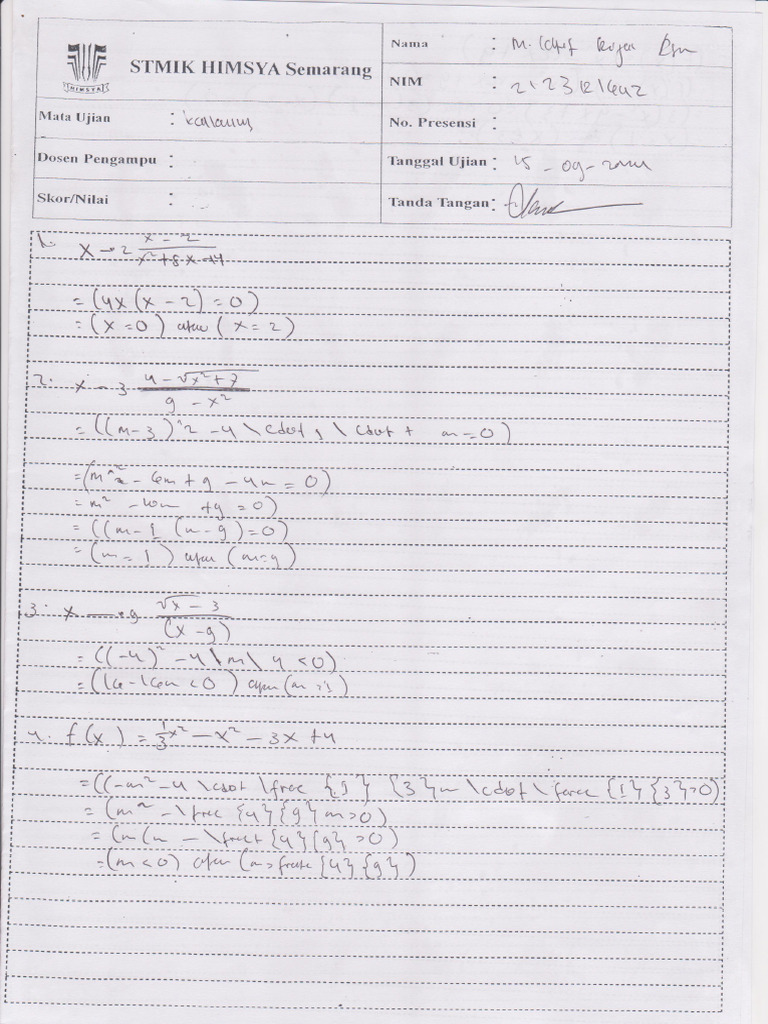 HIMSYA
STMIK HIMSYA Semarang
Nama : M.
NIM : 2123121642
Mata Ujian : kalkulus
No. Presensi :
Dosen Pengampu :
Tanggal Ujian : 15 - 09 -
Skor/Nilai :
Tanda Tangan :
1. x → 2 x - 2 / x² + 8x + 4
= (4x (x - 2) = 0)
= (x = 0) atau (x = 2)
2. x → 3 4 - √x² + 7 / 9 - x²
= ((m-3)^2 - 4 \cdot 1 \cdot m = 0)
= (m^2 - 6m + 9 - 4m = 0)
= m² - 10m + 9 = 0)
= ((m - 1 (m - 9) = 0)
= (m = 1) atau (m = 9)
3. x → 9 √x - 3 / (x - 9)
= ((-4)² - 4 \ m \ 4 < 0)
= (16 - 16m < 0) atau (m > 1)
4. f(x) = 1/3 x² - x² - 3x + 4
= ((-m² - 4 \cdot \frac {1} {3} m \cdot \frac {1} {3} > 0)
= (m² - \frac {4} {9} m > 0)
= (m (m - \fract {4} {9} > 0)
= (m < 0) atau (m > fract {4} {9})